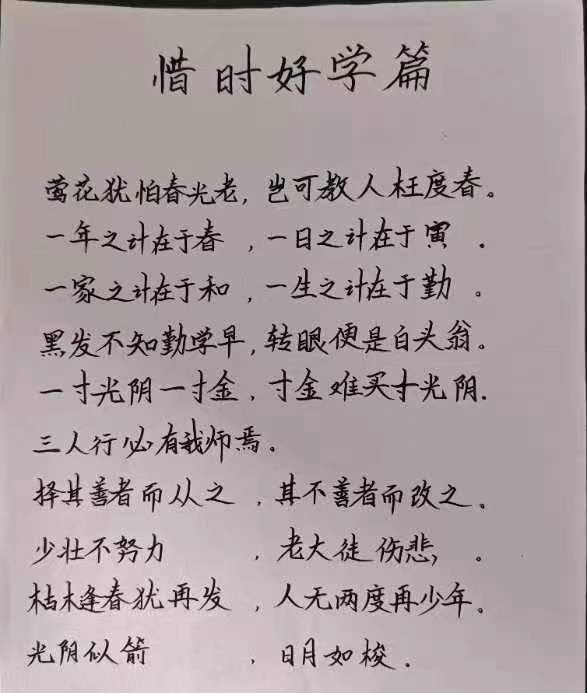 惜时好学篇
莺花犹怕春光老，岂可教人枉度春。
一年之计在于春，一日之计在于寅．
一家之计在于和，一生之计在于勤。
黑发不知勤学早，转眼便是白头翁。
一寸光阴一寸金，寸金难买寸光阴．
三人行必有我师焉。
择其善者而从之，其不善者而改之。
少壮不努力，老大徒伤悲，。
枯木逢春犹再发，人无两度再少年。
光阴似箭，日月如梭．